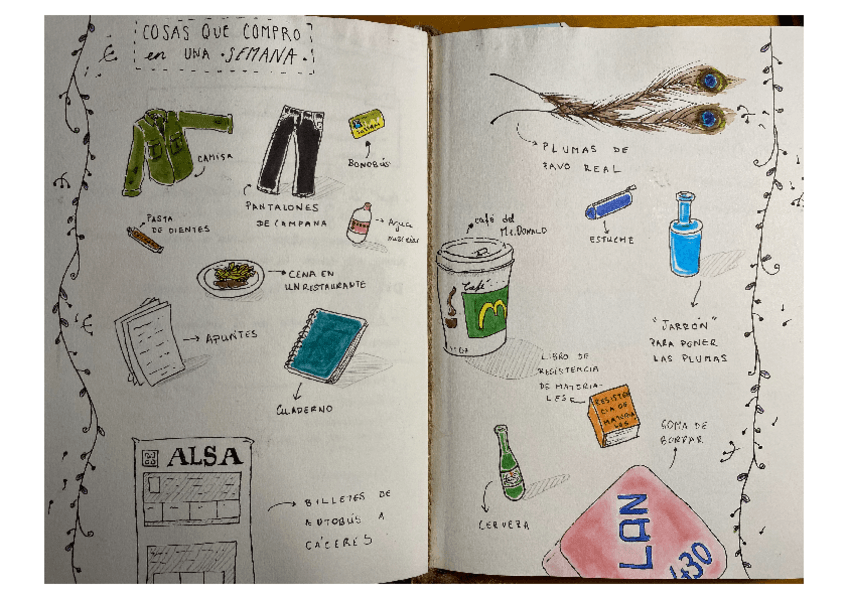 COSAS QUE COMPRO
en UNA · SEMANA ·
CAMISA
PANTALONES
DE CAMPANA
BONOBÚS
PASTA
DE DIENTES
Agua
CENA EN
UN RESTAURANTE
APUNTES
CUADERNO
ALSA
BILLETES DE
AUTOBÚS A
CÁCERES
PLUMAS DE
PAVO REAL
café del
Mc.DONALD
Café
ESTUCHE
"JARRÓN"
PARA PONER
LAS PLUMAS
LIBRO DE
RESISTENCIA
DE MATERIA-
LES
RESISTEN
CIA DE
MATERIA
LES
GOMA DE
BORRAR
CERVEZA
LAN
430